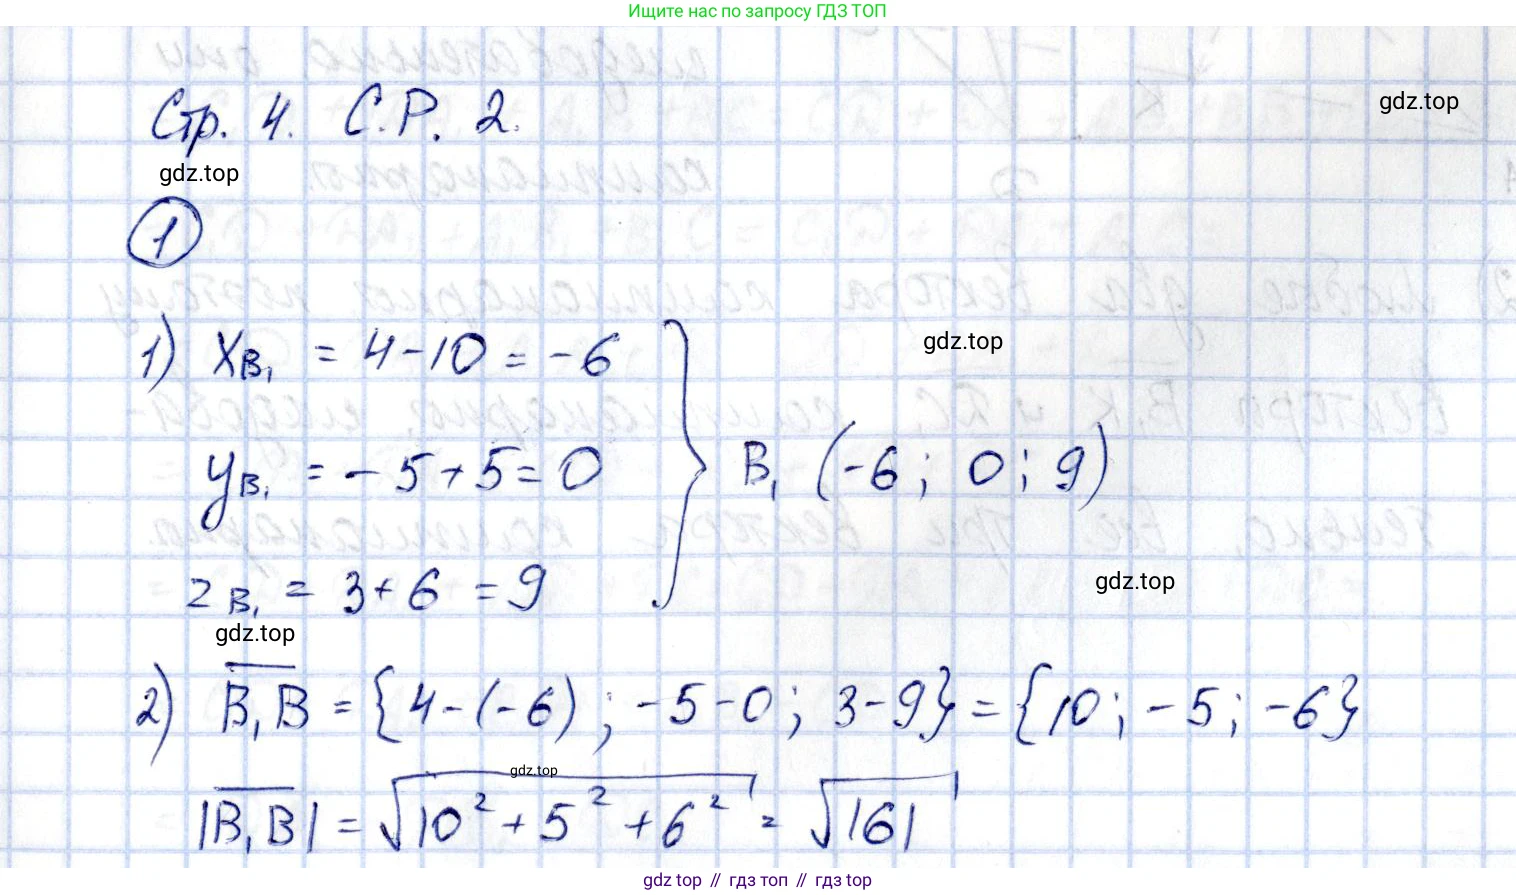 Ищите нас по запросу ГДЗ ТОП
gdz.top
Стр. 4. С.Р. 2.
gdz.top
1
1) x_{B_1} = 4 - 10 = -6
gdz.top
y_{B_1} = -5 + 5 = 0
B_1 (-6; 0; 9)
z_{B_1} = 3 + 6 = 9
gdz.top
gdz.top
2) \overline{B_1B} = {4 - (-6); -5 - 0; 3 - 9} = {10; -5; -6}
gdz.top
|\overline{B_1B}| = √(10² + 5² + 6²) = √161
gdz top // гдз топ // гдз top